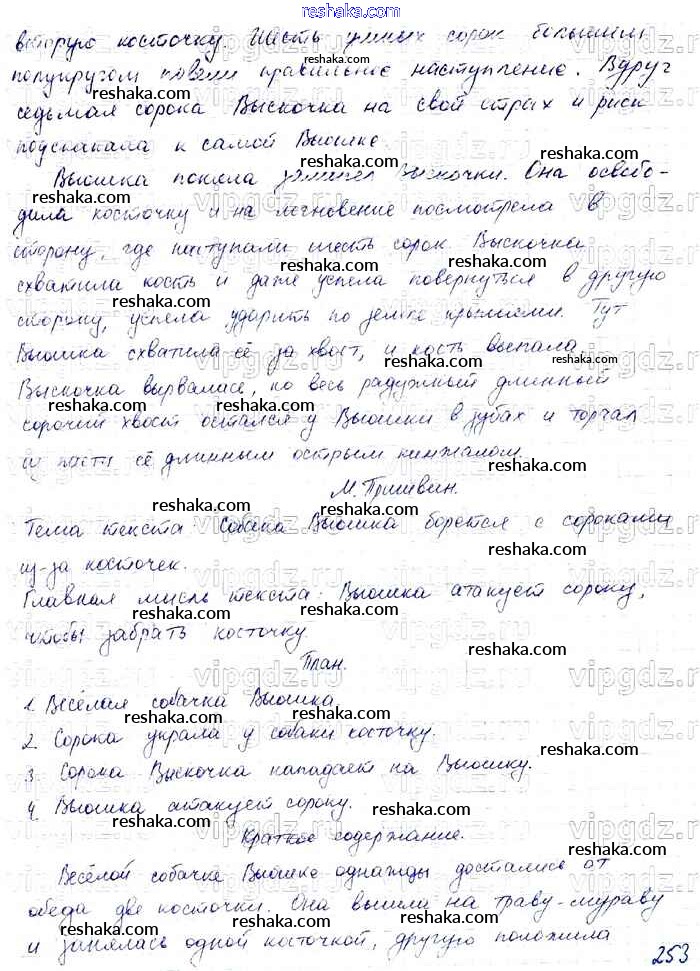 reshaka.com
вторую косточку. Шесть умных сорок большим
полукругом повели правильное наступление. Вдруг
седьмая сорока Выскочка на свой страх и риск
подскакала к самой Вьюшке
Вьюшка поняла замысел Выскочки. Она освобо-
дила косточку и на мгновение посмотрела в
сторону, где наступали шесть сорок. Выскочка
схватила кость и даже успела повернуться в другую
сторону, успела ударить по земле крыльями. Тут
Вьюшка схватила её за хвост, и кость выпала
Выскочка вырвалась, но весь радужный длинный
сорочий хвост остался у Вьюшки в зубах и торчал
из пасти её длинным острым кинжалом.
М. Пришвин.
Тема текста: Собака Вьюшка борется с сороками
из-за косточек.
Главная мысль текста: Вьюшка атакует сороку,
чтобы забрать косточку
План.
1. Весёлая собачка Вьюшка
2. Сорока украла у собаки косточку.
3. Сорока Выскочка нападает на Вьюшку.
4. Вьюшка атакует сороку.
Краткое содержание.
Весёлой собачке Вьюшке однажды достались от
обеда две косточки. Она вышла на траву-мураву
и занялась одной косточкой, другую положила
253